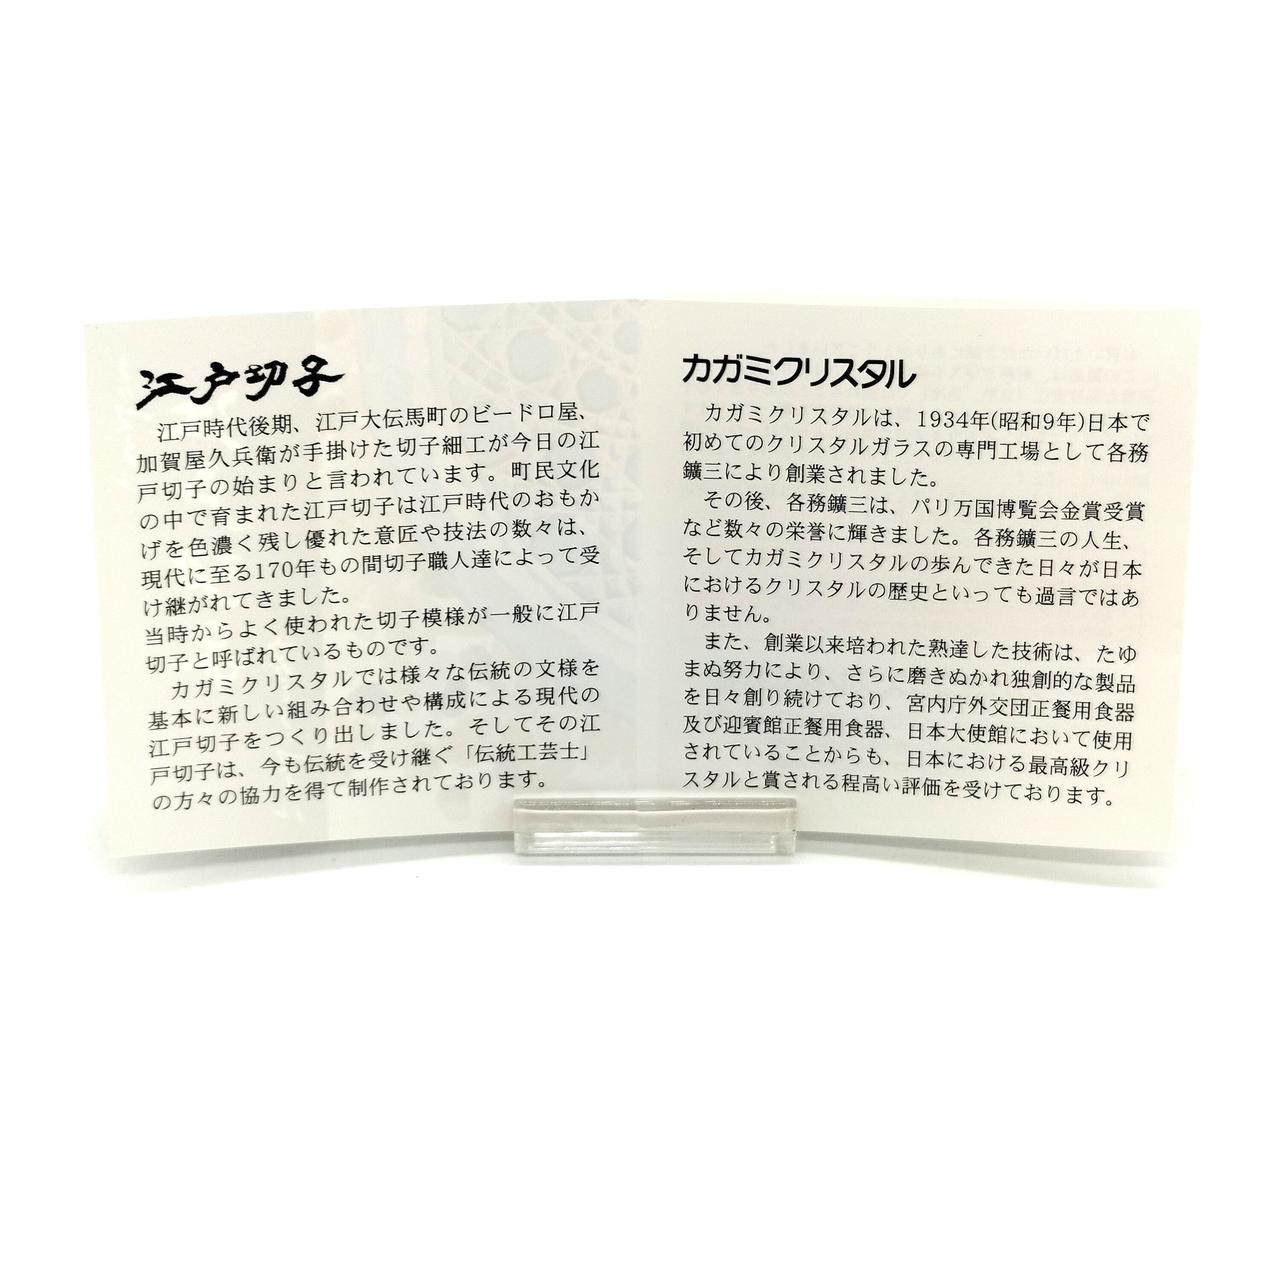 江戸切子
江戸時代後期、江戸大伝馬町のビードロ屋、
加賀屋久兵衛が手掛けた切子細工が今日の江
戸切子の始まりと言われています。町民文化
の中で育まれた江戸切子は江戸時代のおもか
げを色濃く残し優れた意匠や技法の数々は、
現代に至る170年もの間切子職人達によって受
け継がれてきました。
当時からよく使われた切子模様が一般に江戸
切子と呼ばれているものです。
カガミクリスタルでは様々な伝統の文様を
基本に新しい組み合わせや構成による現代の
江戸切子をつくり出しました。そしてその江
戸切子は、今も伝統を受け継ぐ「伝統工芸士」
の方々の協力を得て制作されております。
カガミクリスタル
カガミクリスタルは、1934年(昭和9年)日本で
初めてのクリスタルガラスの専門工場として各務
鑛三により創業されました。
その後、各務鑛三は、パリ万国博覧会金賞受賞
など数々の栄誉に輝きました。各務鑛三の人生、
そしてカガミクリスタルの歩んできた日々が日本
におけるクリスタルの歴史といっても過言ではあ
りません。
また、創業以来培われた熟達した技術は、たゆ
まぬ努力により、さらに磨きぬかれ独創的な製品
を日々創り続けており、宮内庁外交団正餐用食器
及び迎賓館正餐用食器、日本大使館において使用
されていることからも、日本における最高級クリ
スタルと賞される程高い評価を受けております。